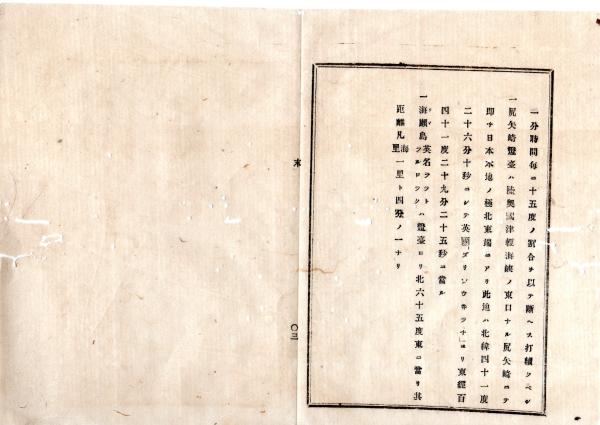 一分時間每ニ十五度ノ割合ヲ以テ斷ヘス打續クヘシ
一尻矢崎燈臺ハ陸奧國津輕海峽ノ東口ナル尻矢崎ニテ
即チ日本本地ノ極北東端ニアリ此地ハ北緯四十一度
二十六分十秒ニシテ英國 ヨリ東經百
四十一度二十九分二十五秒ニ當ル
一海獺島英名 ハ燈臺ヨリ北六十五度東ニ當リ其
距離凡海里一里ト四分ノ一ナリ
末
〇三